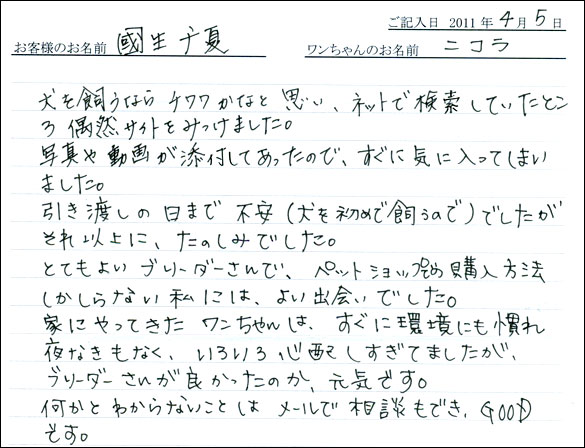 ご記入日 2011年4月5日
お客様のお名前 國生 千夏 ワンちゃんのお名前 ニコラ
犬を飼うなら チワワかなと 思い、ネットで検索していたとこ
ろ偶然サイトをみつけました。
写真や動画が添付してあったので、すぐに気に入ってしまい
ました。
引き渡しの日まで 不安(犬を初めて飼うので)でしたが
それ以上に、たのしみでした。
とてもよい ブリーダーさんで、ペットショップの購入方法
しかしらない 私には、よい出会いでした。
家にやってきた ワンちゃんは、すぐに環境にも慣れ
夜なきもなく、いろいろ心配しすぎてましたが、
ブリーダーさんが良かったのか、元気です。
何かと わからないことは メールで相談もでき、GOOD
です。